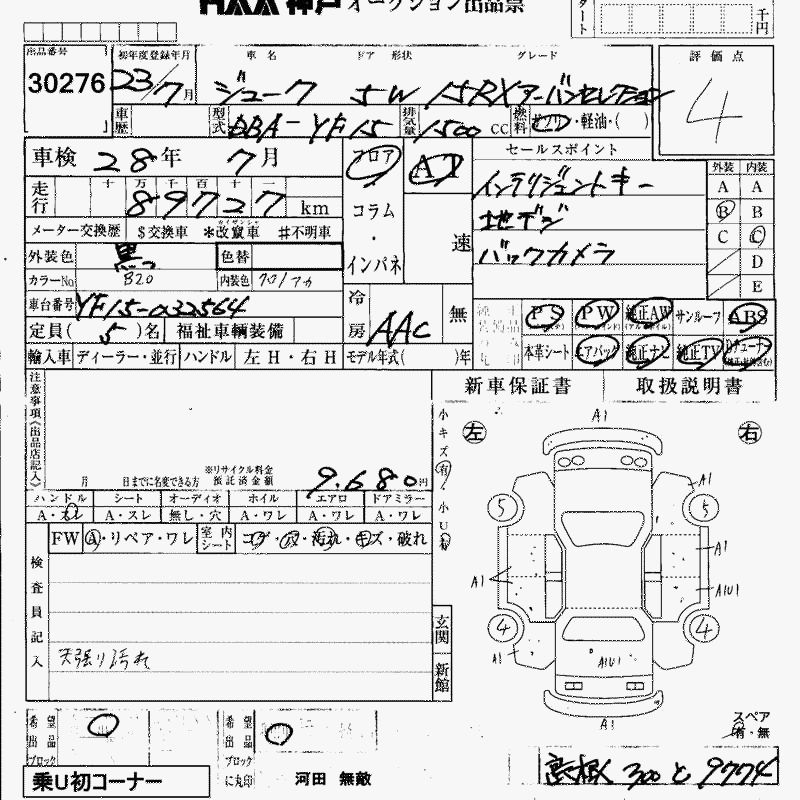 HAA神戸 オークション出品票
千円
出品番号 初年度登録年月 車名 ドア 形状 グレード 評価点
30276 23/7月 ジューク 5W 15RXアーバンセレクション 4
車歴 型式 DBA-YF15 排気量 1500 CC 燃料 ガソリン・軽油・( )
車検 28年 7月 フロア AT セールスポイント
走行 十 万 千 百 十 一 外装 内装
89727 km コラム インテリジェントキー A A
メーター交換歴 $交換車 *改竄車 #不明車 ・ 速 地デジ B B
外装色 黒 色替 インパネ バックカメラ C C
カラーNo B20 内装色 D
車台番号 YF15-032564 冷房 AAC 無 E
定員( 5 )名 福祉車輌装備 PS PW 純正AW サンルーフ ABS
輸入車 ディーラー・並行 ハンドル 左H・右H モデル年式( )年 本革シート エアバッグ 純正ナビ 純正TV
注意事項《出品店記入》 新車保証書 取扱説明書
月 日までに名変できる方 ※リサイクル料金預託済金額 9,680円
小キズ有・小U有
左 右
ハンドル シート オーディオ ホイル エアロ ドアミラー
A・スレ A・スレ 無し・穴 A・ワレ A・ワレ A・ワレ
FW A・リペア・ワレ 室内シート コゲ・穴・汚れ・キズ・破れ
検査員記入
天張り汚れ
A1
A1
5 5
A1
A1 A1U1
4 4
A1 A1U1
A1
玄関
新館
スペア
有・無
希望出品ブロック 希望出品ブロックに丸印
乗U初コーナー 河田 無敵 300と9774